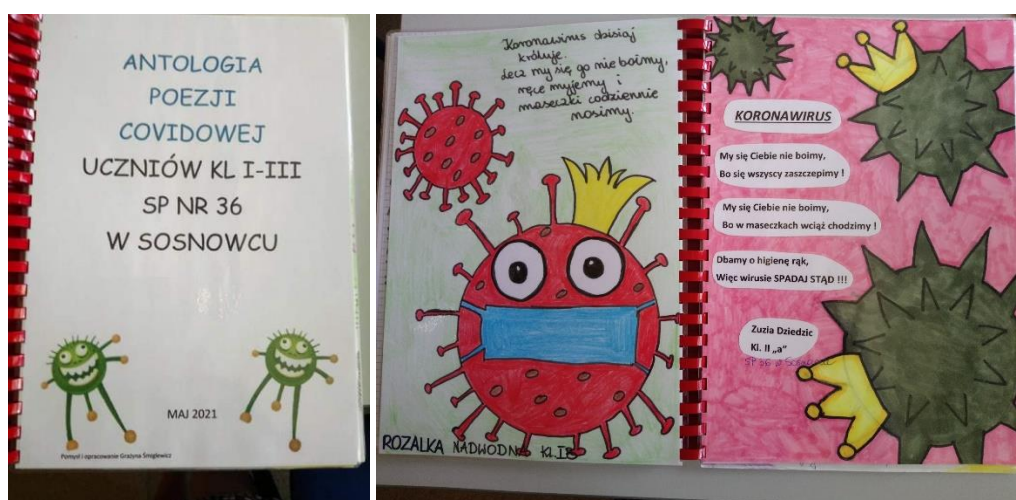 ANTOLOGIA
POEZJI
COVIDOWEJ
UCZNIÓW KL I-III
SP NR 36
W SOSNOWCU
MAJ 2021
Pomysł i opracowanie Grażyna Śmiglewicz
Koronawirus dzisiaj
króluje.
Lecz my się go nie boimy,
ręce myjemy i
maseczki codziennie
nosimy.
ROZALKA NADWODNA KL IB
KORONAWIRUS
My się Ciebie nie boimy,
Bo się wszyscy zaszczepimy !
My się Ciebie nie boimy,
Bo w maseczkach wciąż chodzimy !
Dbamy o higienę rąk,
Więc wirusie SPADAJ STĄD !!!
Zuzia Dziedzic
Kl. II „a"
SP 36 w